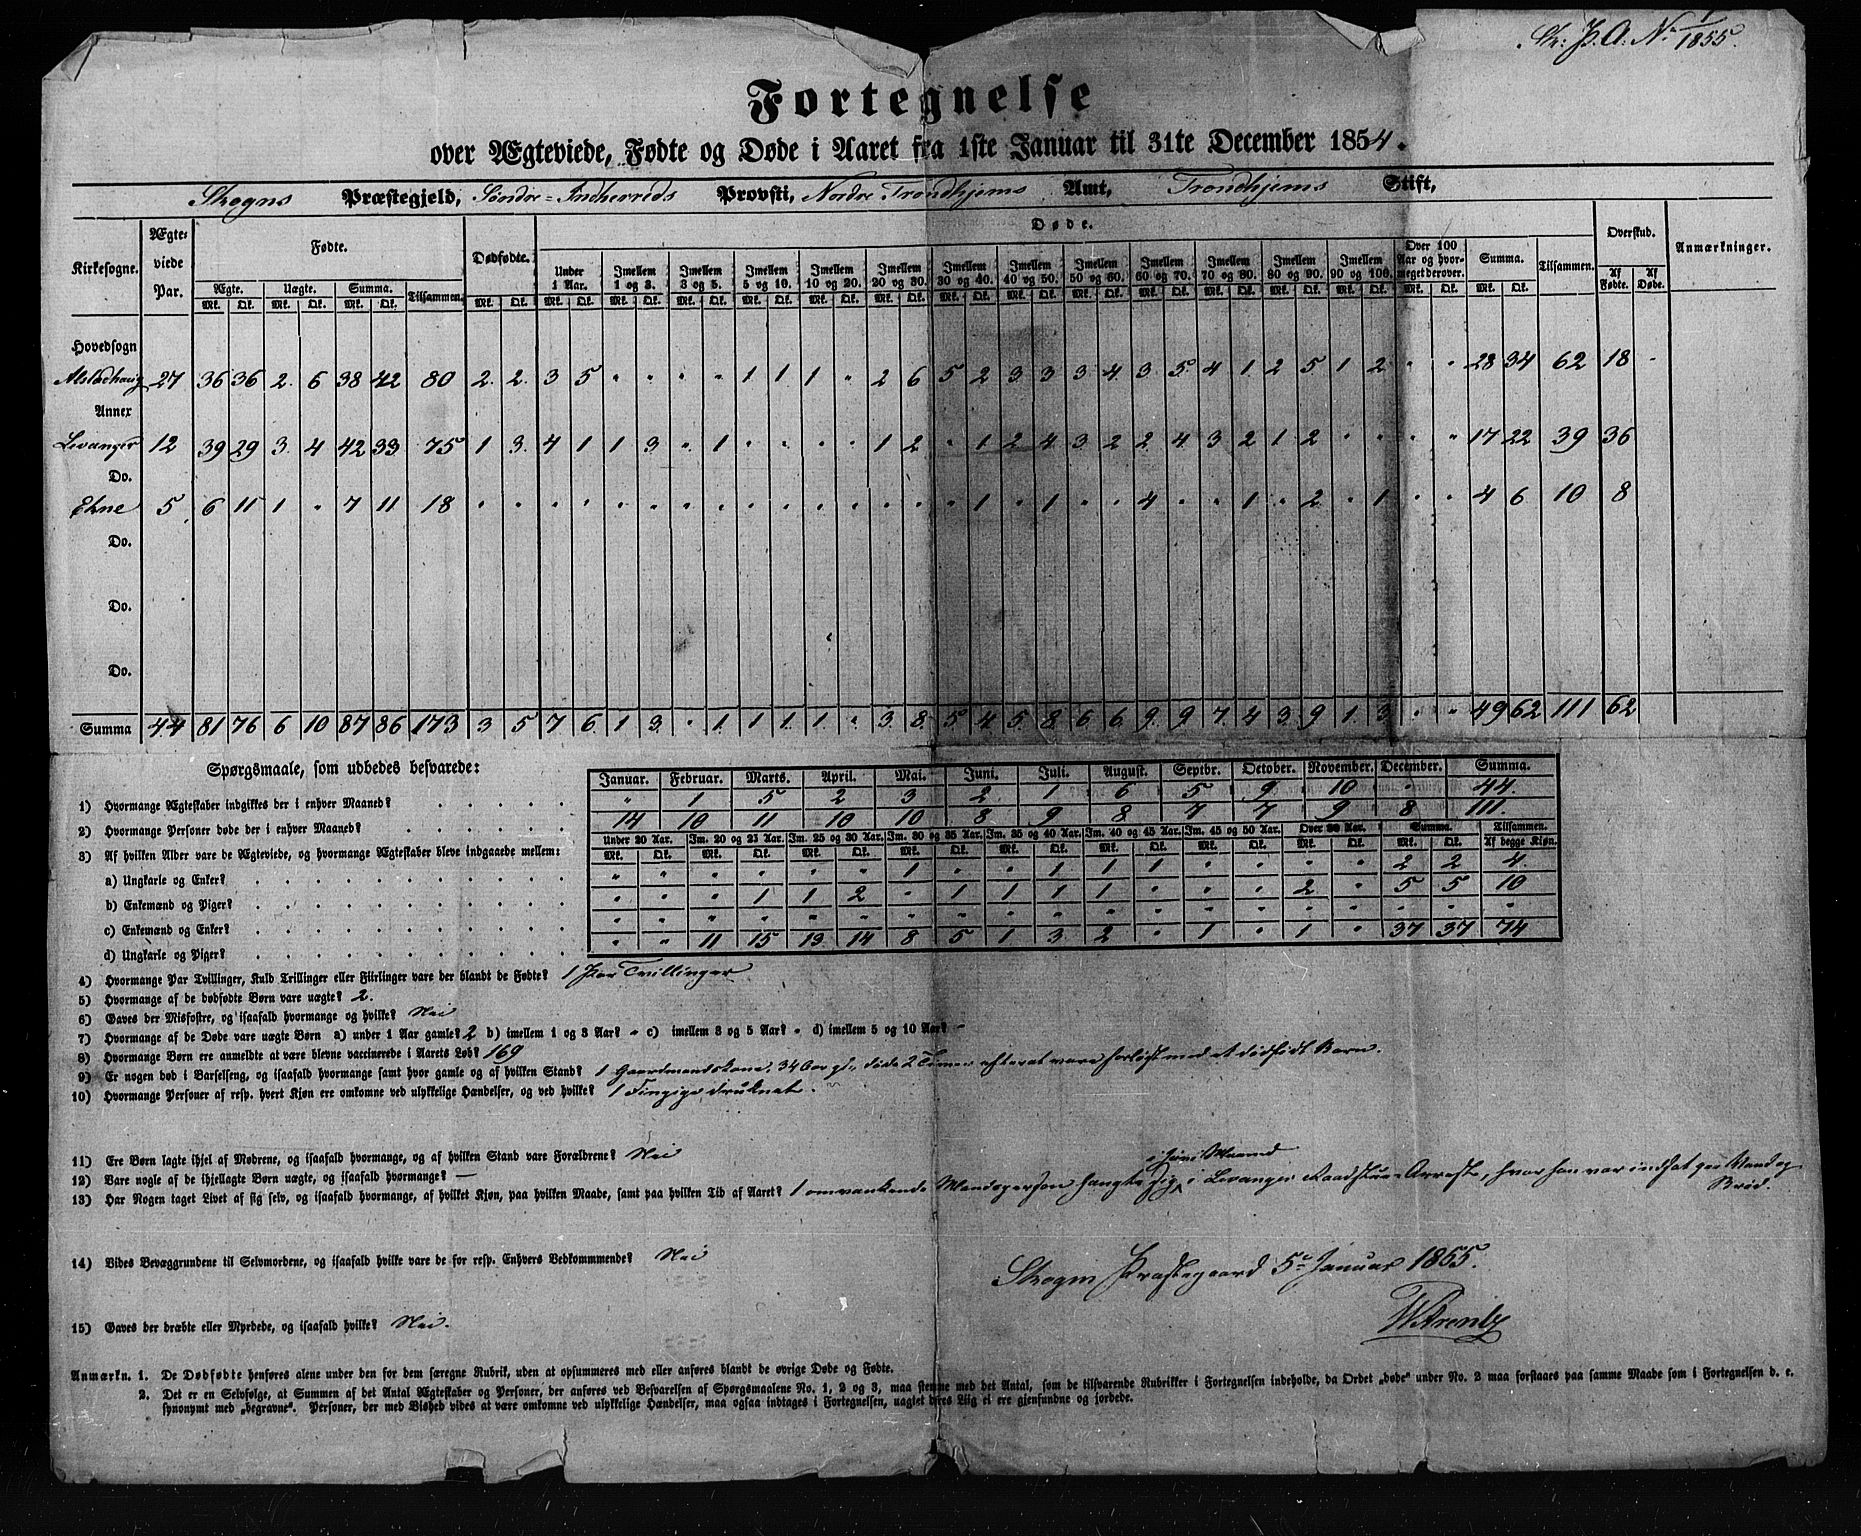 Sk: P. A. No 1/1855.
Fortegnelse
over Ægteviede, Fødte og Døde i Aaret fra 1ste Januar til 31te December 1854.
Skogns Præstegjeld, Søndre-Inherreds Provsti, Nordre Trondhjems Amt, Trondhjems Stift,
Kirkesogne. Ægteviede Par. Fødte. Dødfødte. Døde. Overskud. Anmærkninger.
Ægte. Uægte. Summa. Tilsammen. Under 1 Aar. Imellem 1 og 3. Imellem 3 og 5. Imellem 5 og 10. Imellem 10 og 20. Imellem 20 og 30. Imellem 30 og 40. Imellem 40 og 50. Imellem 50 og 60. Imellem 60 og 70. Imellem 70 og 80. Imellem 80 og 90. Imellem 90 og 100. Over 100 Aar og hvormeget derover. Summa. Tilsammen. Af Fødte. Af Døde.
Mk. Qk. Mk. Qk. Mk. Qk. Mk. Qk. Mk. Qk. Mk. Qk. Mk. Qk. Mk. Qk. Mk. Qk. Mk. Qk. Mk. Qk. Mk. Qk. Mk. Qk. Mk. Qk. Mk. Qk. Mk. Qk. Mk. Qk. Mk. Qk. Mk. Qk.
Hovedsogn
Alstadhoug 27 36 36 2 6 38 42 80 2 2 3 5 " " " " 1 1 1 " 2 6 5 2 3 3 3 4 3 5 4 1 2 5 1 2 " " 28 34 62 18 "
Annex
Levanger 12 39 29 3 4 42 33 75 1 3 4 1 1 3 " 1 " " " " 1 2 " 1 2 4 3 2 2 4 3 2 1 2 " " " " 17 22 39 36
Do.
Ekne 5 6 11 1 " 7 11 18 " " " " " " " " " " " " " " " 1 " 1 " " 4 " " 1 " 2 " 1 " " 4 6 10 8
Do.
Do.
Do.
Summa 44 81 76 6 10 87 86 173 3 5 7 6 1 3 " 1 1 1 1 " 3 8 5 4 5 8 6 6 9 9 7 4 3 9 1 3 " " 49 62 111 62
Spørgsmaale, som udbedes besvarede:
Januar. Februar. Marts. April. Mai. Juni. Juli. August. Septbr. October. November. December. Summa.
1) Hvormange Ægteskaber indgikkes der i enhver Maaned? " 1 5 2 3 2 1 6 5 9 10 " 44.
2) Hvormange Personer døde der i enhver Maaned? 14 10 11 10 10 8 9 8 7 7 9 8 111.
Under 20 Aar. Im. 20 og 25 Aar. Im. 25 og 30 Aar. Im. 30 og 35 Aar. Im. 35 og 40 Aar. Im. 40 og 45 Aar. Im. 45 og 50 Aar. Over 50 Aar. Summa. Tilsammen.
3) Af hvilken Alder vare de Ægteviede, og hvormange Ægteskaber bleve indgaaede mellem: Mk. Qk. Mk. Qk. Mk. Qk. Mk. Qk. Mk. Qk. Mk. Qk. Mk. Qk. Mk. Qk. Mk. Qk. Af begge Kjøn.
a) Ungkarle og Enker? " " " " " " 1 " " 1 1 1 " " " " 2 2 4
b) Enkemænd og Piger? " " " 1 1 2 " 1 1 1 1 " " " 2 " 5 5 10
c) Enkemænd og Enker? " " " " " " " " " " " " " " " " " " "
d) Ungkarle og Piger? " " 11 15 13 14 8 5 1 3 2 " 1 " 1 " 37 37 74
4) Hvormange Par Tvillinger, Kuld Trillinger eller Fiirlinger vare der blandt de Fødte? 1 Par Tvillinger
5) Hvormange af de dødfødte Børn vare uægte? 2.
6) Gaves der Misfostre, og isaafald hvormange og hvilke? Nei
7) Hvormange af de Døde vare uægte Børn a) under 1 Aar gamle? 2 b) imellem 1 og 3 Aar? " c) imellem 3 og 5 Aar? " d) imellem 5 og 10 Aar? "
8) Hvormange Børn ere anmeldte at være blevne vaccinerede i Aarets Løb? 169
9) Er nogen død i Barselseng, og isaafald hvormange samt hvor gamle og af hvilken Stand? 1 Gaardmandskone, 34 Aar gl., døde 2 Timer efter at være forløst med et dødfødt Barn.
10) Hvormange Personer af resp. hvert Kjøn ere omkomne ved ulykkelige Hændelser, og ved hvilke? 1 druknet.
11) Ere Børn lagte ihjel af Mødrene, og isaafald hvormange, og af hvilken Stand vare Forældrene? Nei
12) Vare nogle af de ihjellagte Børn uægte, og isaafald hvormange? —
13) Har Nogen taget Livet af sig selv, og isaafald hvormange, af hvilket Kjøn, paa hvilken Maade, samt paa hvilken Tid af Aaret? 1 omvankende Mandsperson hængte sig i Juni Maaned i Levanger Raadstue-Arrest, hvor han var indsat paa Vand og
Brød.
14) Vides Bevæggrundene til Selvmordene, og isaafald hvilke vare de for resp. Enhvers Vedkommmende? Nei
Skogns Præstegaard 5te Januar 1855.
W Arentz
15) Gaves der dræbte eller Myrdede, og isaafald hvilke? Nei.
Anmærkn. 1. De Dødfødte henføres alene under den for dem særegne Rubrik, uden at opsummeres med eller anføres blandt de øvrige Døde og Fødte.
2. Det er en Selvfølge, at Summen af det Antal Ægteskaber og Personer, der anføres ved Besvarelsen af Spørgsmaalene No. 1, 2 og 3, maa stemme med det Antal, som de tilsvarende Rubrikker i Fortegnelsen indeholde, da Ordet „døde“ under No. 2 maa forstaaes paa samme Maade som i Fortegnelsen d. e.
synonymt med „begravne“. Personer, der med Vished vides at være omkomne ved ulykkelige Hændelser, maa ogsaa indtages i Fortegnelsen, uagtet deres Liig ei ere gjenfundne og jordede.